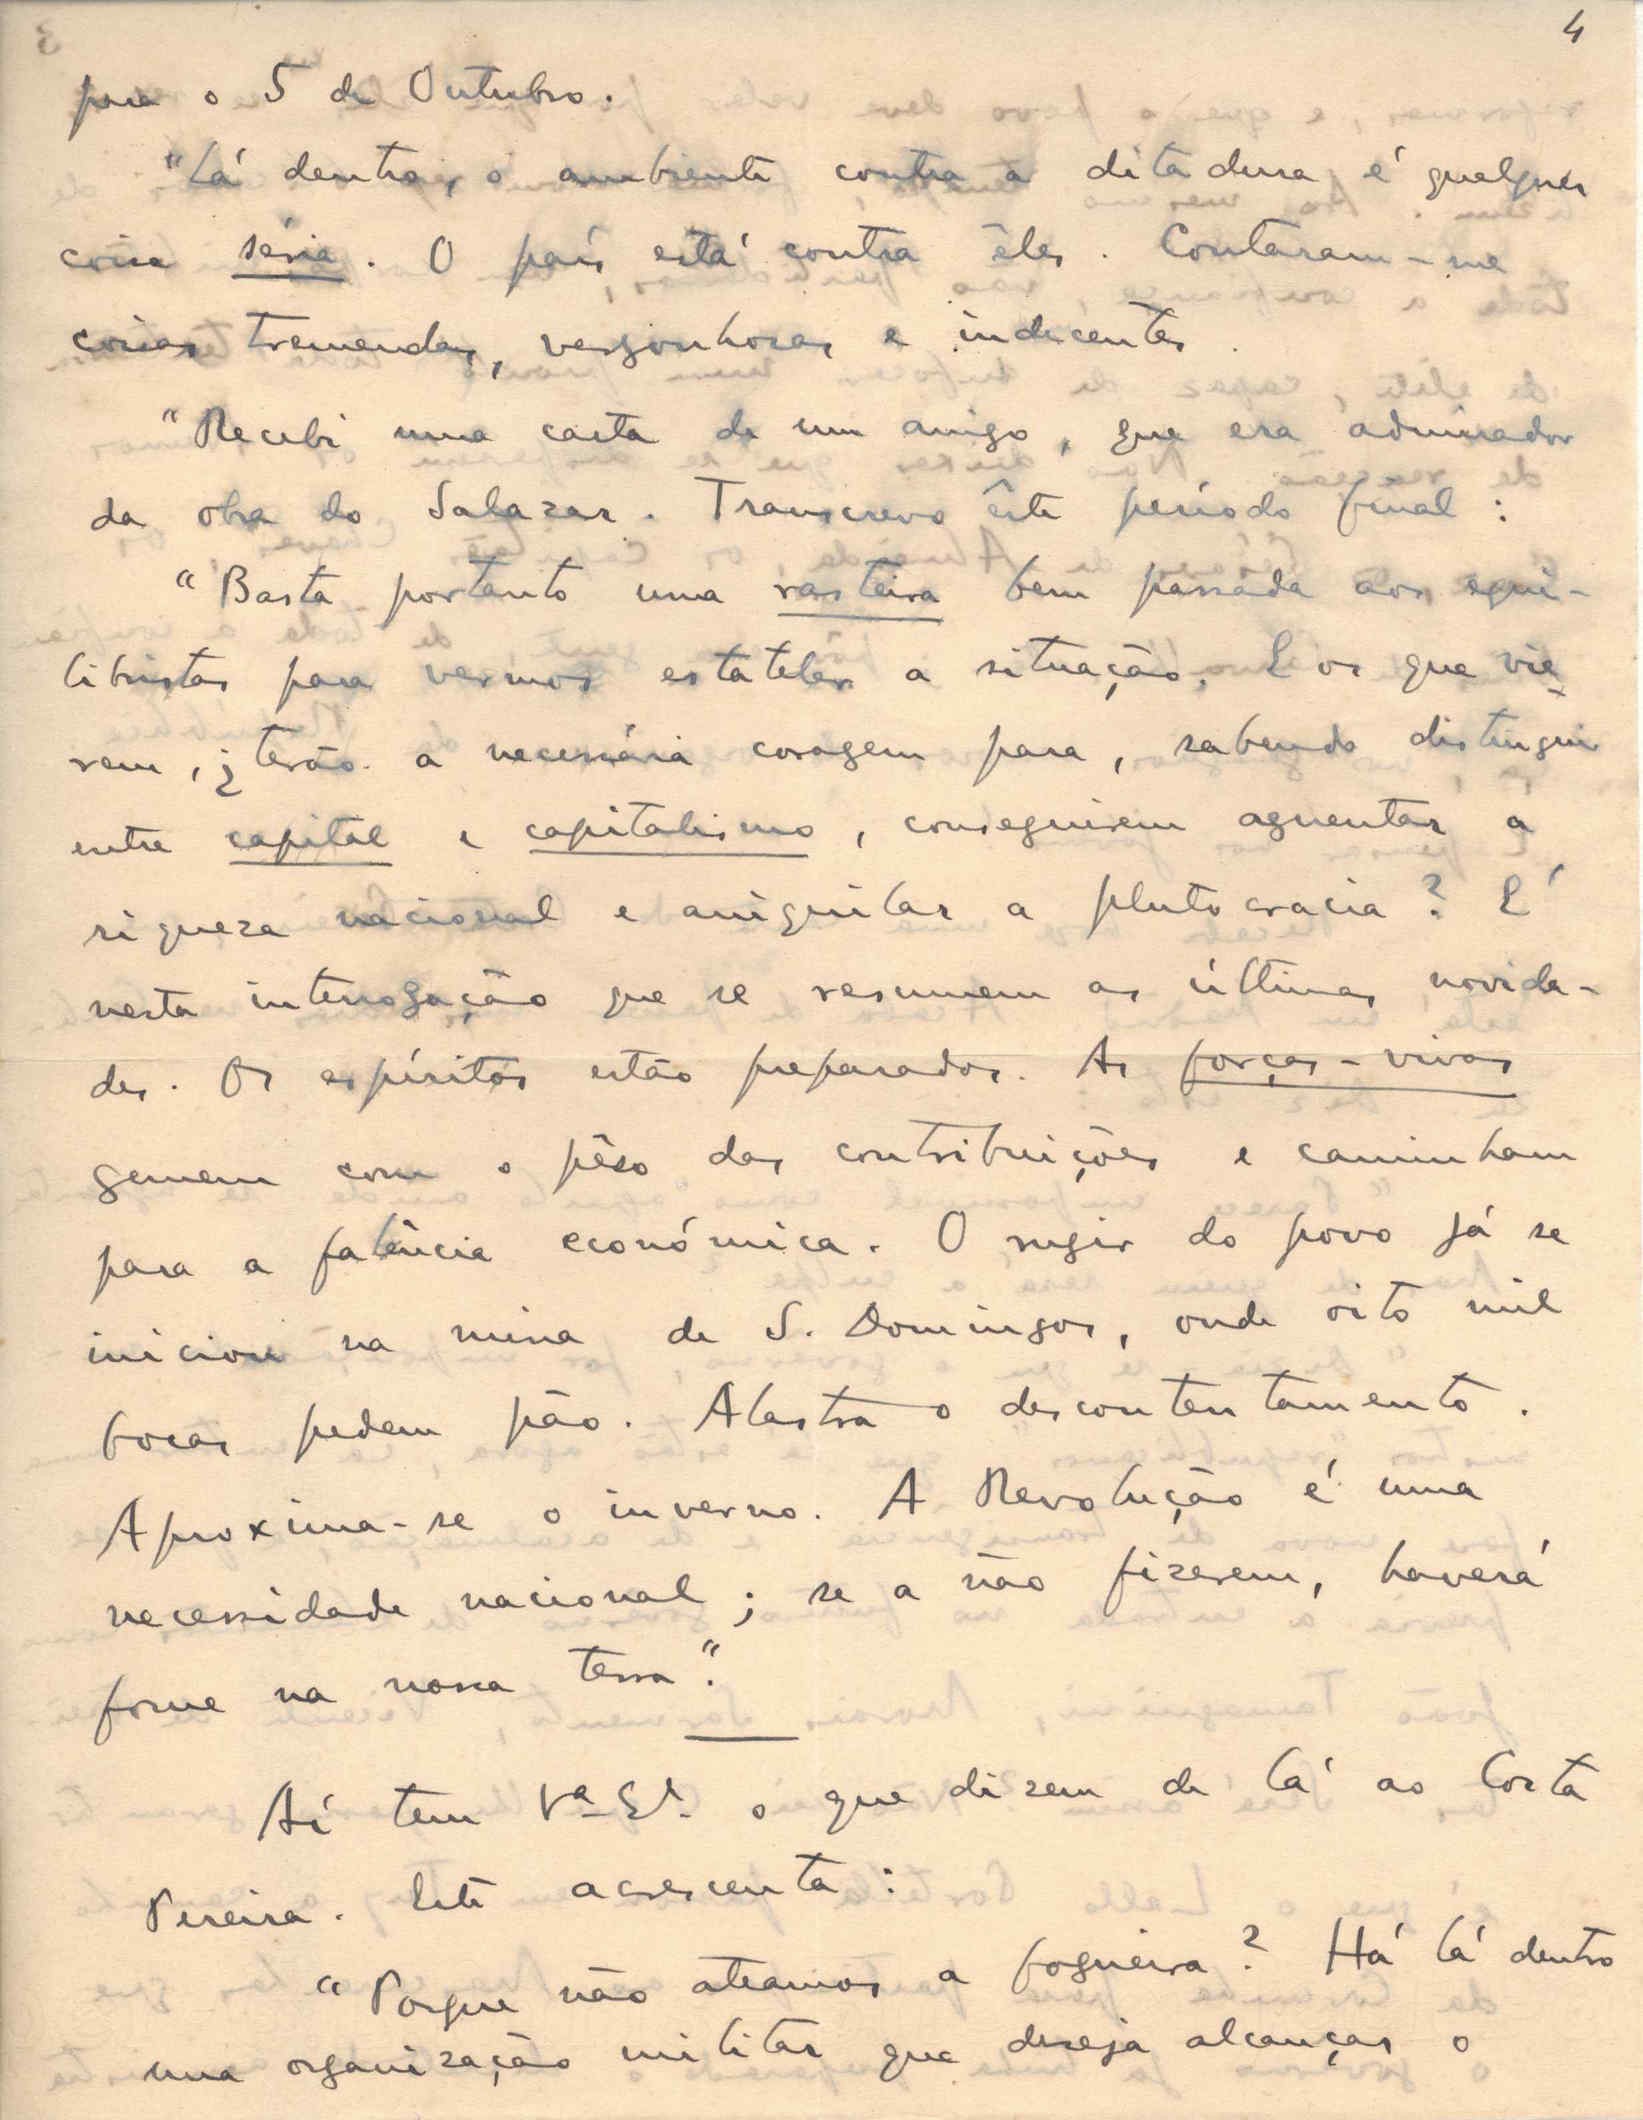 4
para o 5 de Outubro.
"Lá dentro, o ambiente contra a ditadura é qualquer
coisa séria. O país está contra êles. Contaram-me
coisas tremendas, vergonhosas e indecentes.
"Recebi uma carta de um amigo, que era admirador
da obra do Salazar. Transcrevo êste período final:
"Basta portanto uma rasteira bem passada aos equi-
libristas para vermos estatelar a situação. E os que vie-
rem, ¿terão a necessária coragem para, sabendo distinguir
entre capital e capitalismo, conseguirem aguentar a
riqueza nacional e aniquilar a plutocracia? É
nesta interrogação que se resumem as últimas novida-
des. Os espíritos estão preparados. As forças-vivas
gemem com o pêso das contribuições e caminham
para a falência económica. O rugir do povo já se
iniciou na mina de S. Domingos, onde oito mil
bocas pedem pão. Alastra o descontentamento.
Aproxima-se o inverno. A Revolução é uma
necessidade nacional; se a não fizerem, haverá
fome na nossa terra".
Aí tem V.ª Ex.ª o que dizem de lá ao Cortês
Pereira. Este acrescenta:
"Porque não ateamos a fogueira? Há lá dentro
uma organização militar que deseja alcançar o